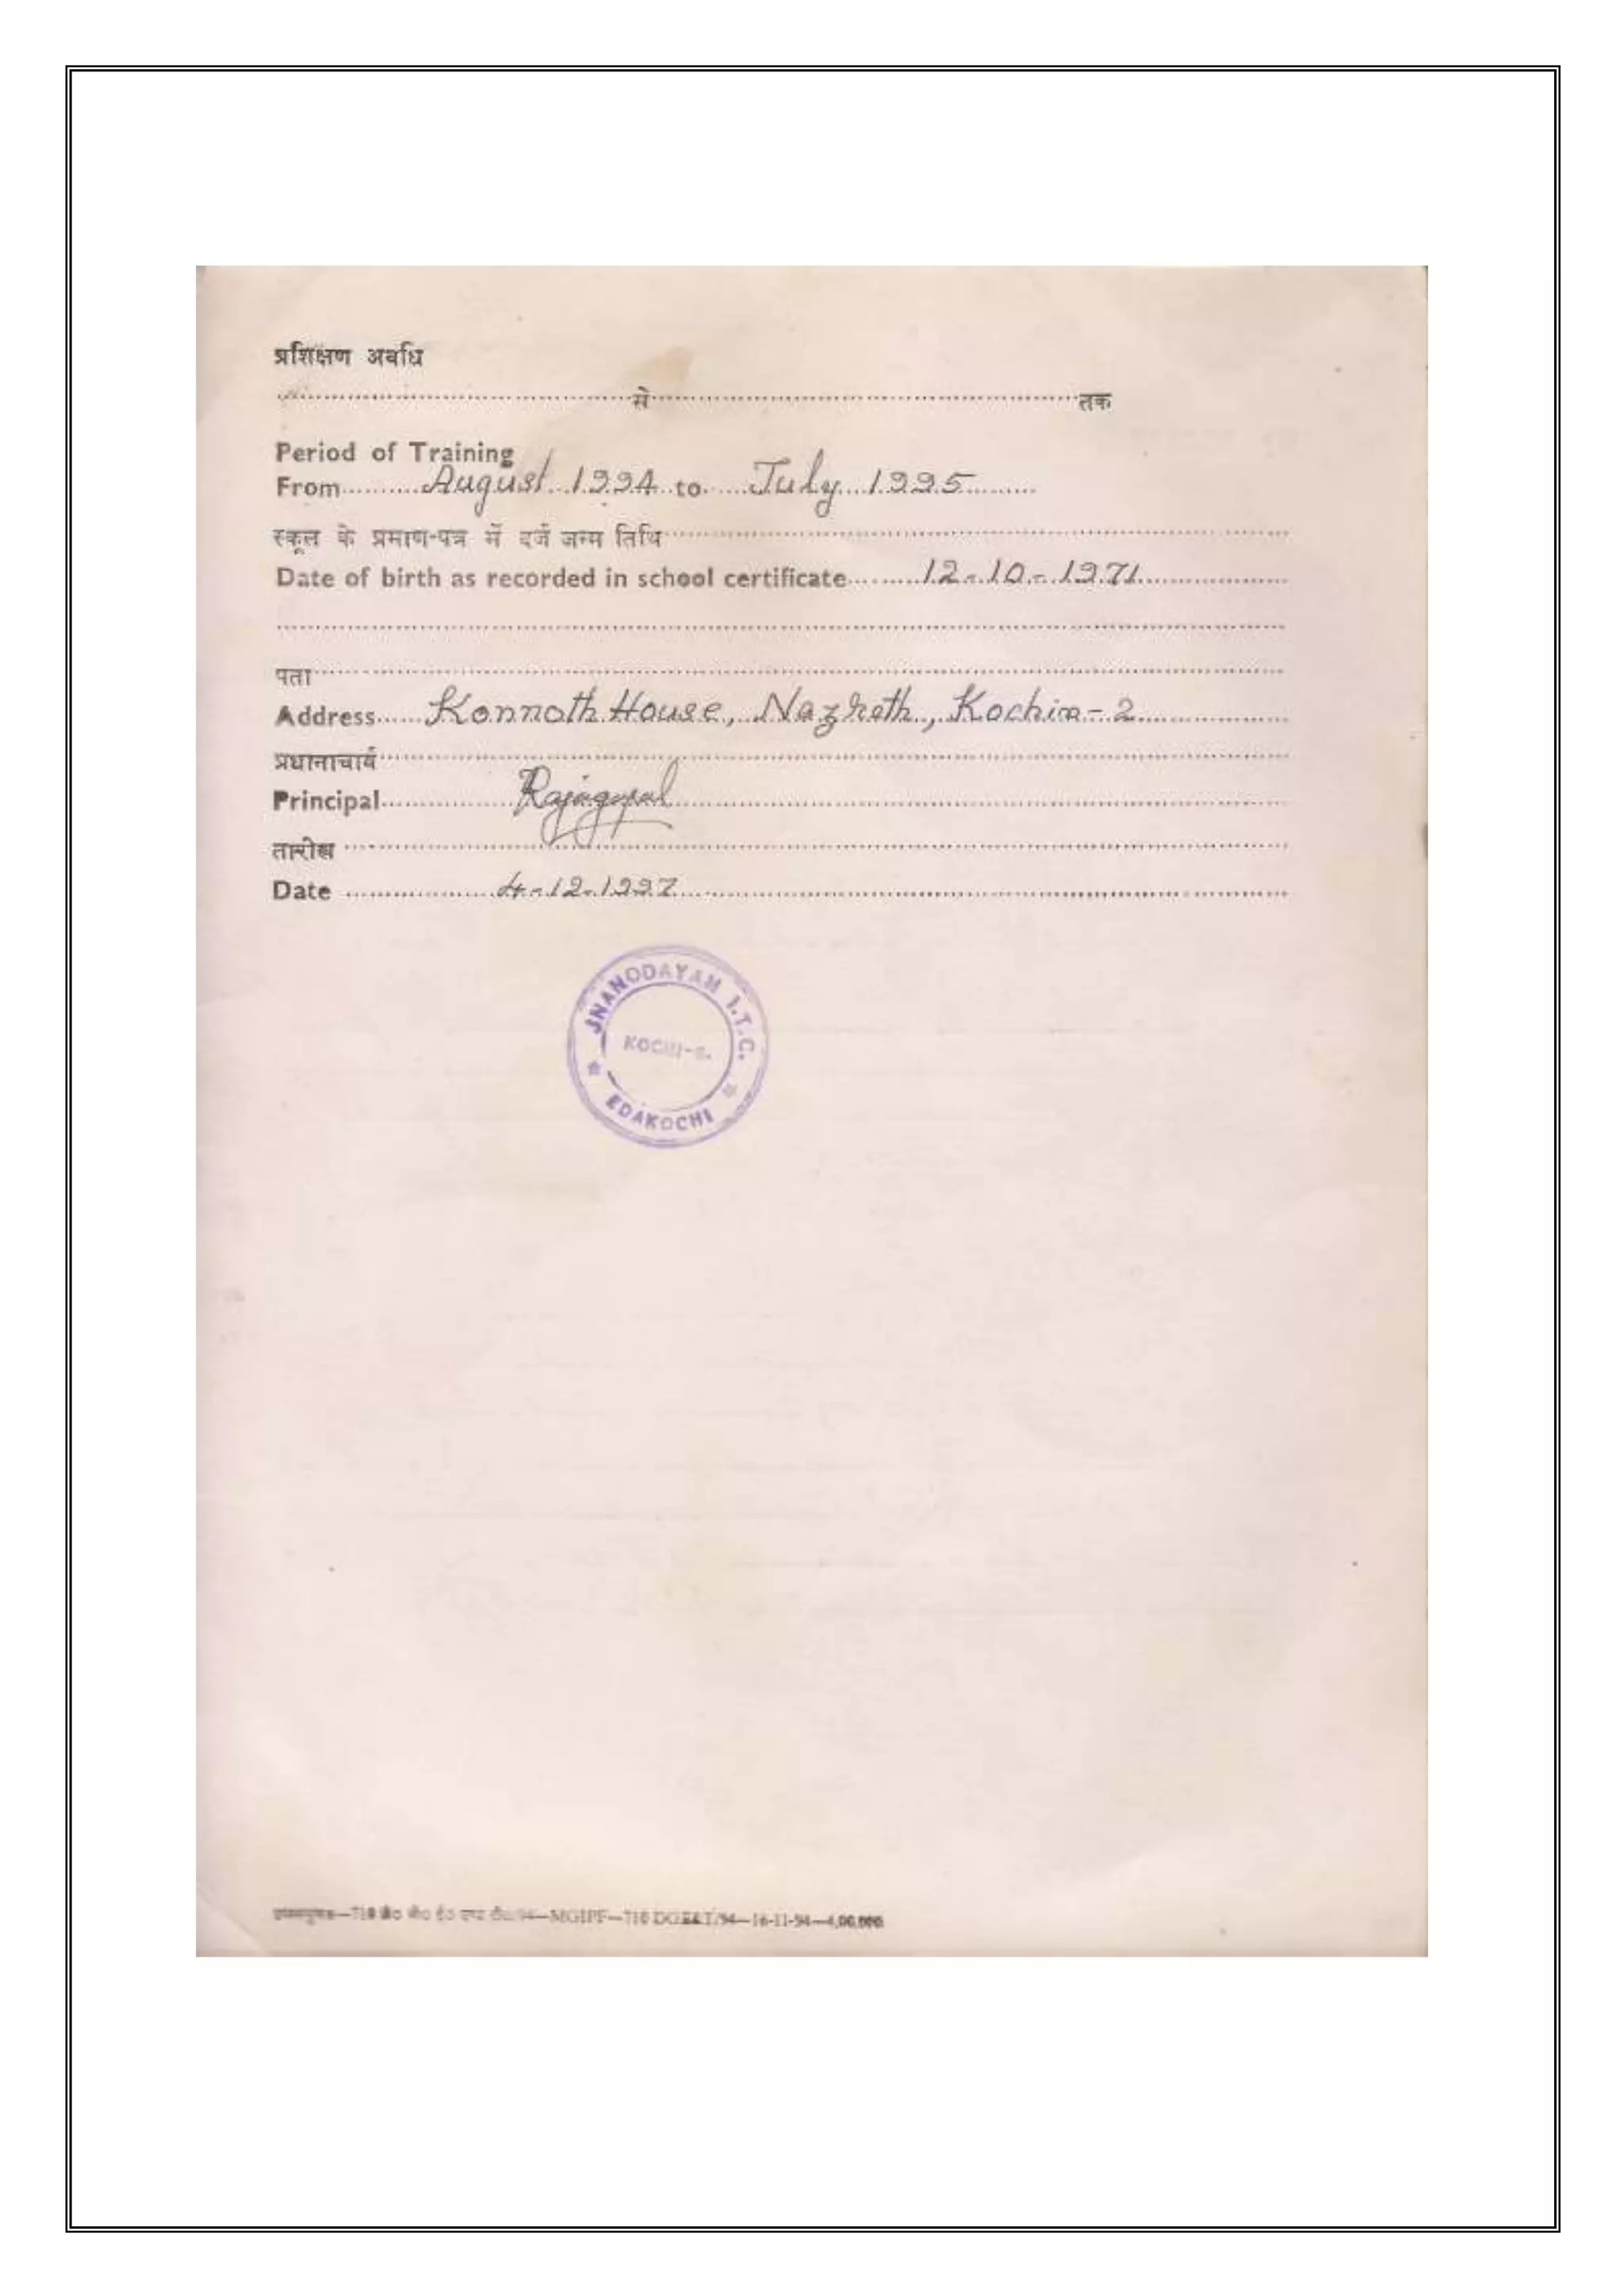 प्रशिक्षण अवधि
से तक
Period of Training
From August 1994 to July 1995
स्कूल के प्रमाण-पत्र में दर्ज जन्म तिथि
Date of birth as recorded in school certificate 12-10-1971
पता
Address Konnoth House, Nazreth, Kochin-2
प्रधानाचार्य
Principal Rajagopal
तारीख
Date 4-12-1997
JNANODAYAM I.T.C.
KOCHI-
EDAKOCHI
MGIPF—710 DGE&T/94—16-11-94—4,00,000